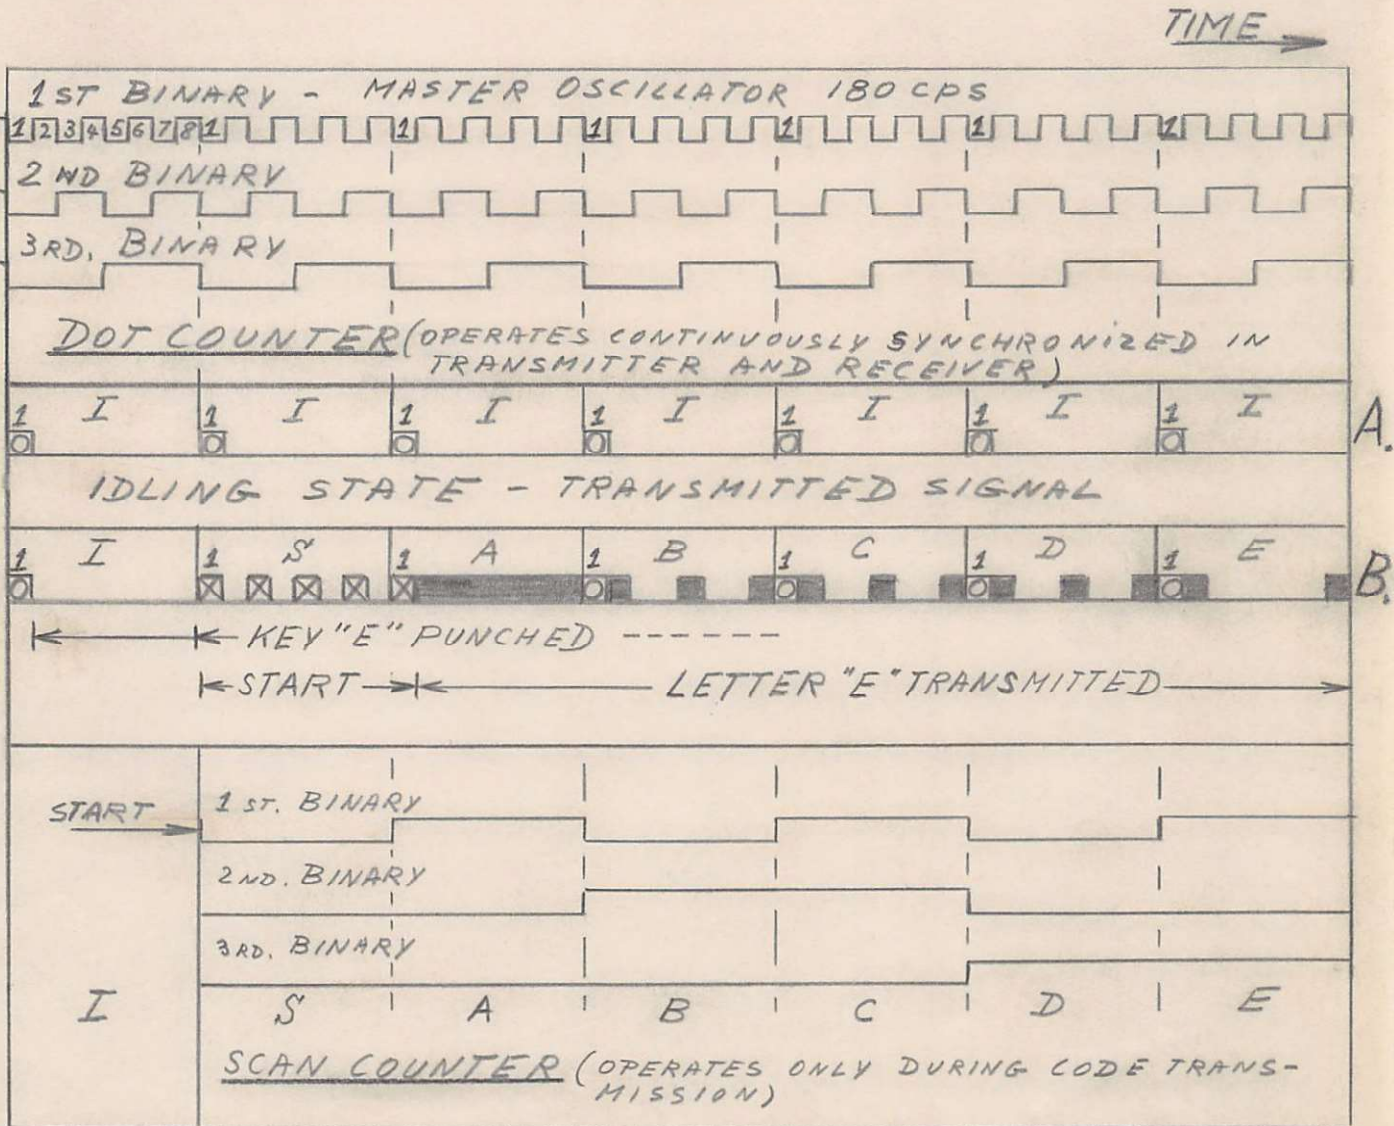 TIME
1ST BINARY - MASTER OSCILLATOR 180 CPS
1 2 3 4 5 6 7 8 1 1 1 1 1 1
2 ND BINARY
3RD. BINARY
DOT COUNTER (OPERATES CONTINUOUSLY SYNCHRONIZED IN
TRANSMITTER AND RECEIVER)
1 I 1 I 1 I 1 I 1 I 1 I 1 I A.
IDLING STATE - TRANSMITTED SIGNAL
1 I 1 S 1 A 1 B 1 C 1 D 1 E B.
KEY "E" PUNCHED ------
START LETTER "E" TRANSMITTED
START 1 ST. BINARY
2 ND. BINARY
3 RD. BINARY
I S A B C D E
SCAN COUNTER (OPERATES ONLY DURING CODE TRANS-
MISSION)